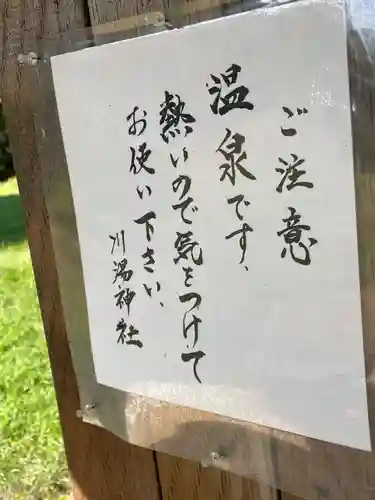 ご注意
温泉です、
熱いので気をつけて
お使い下さい、
川湯神社